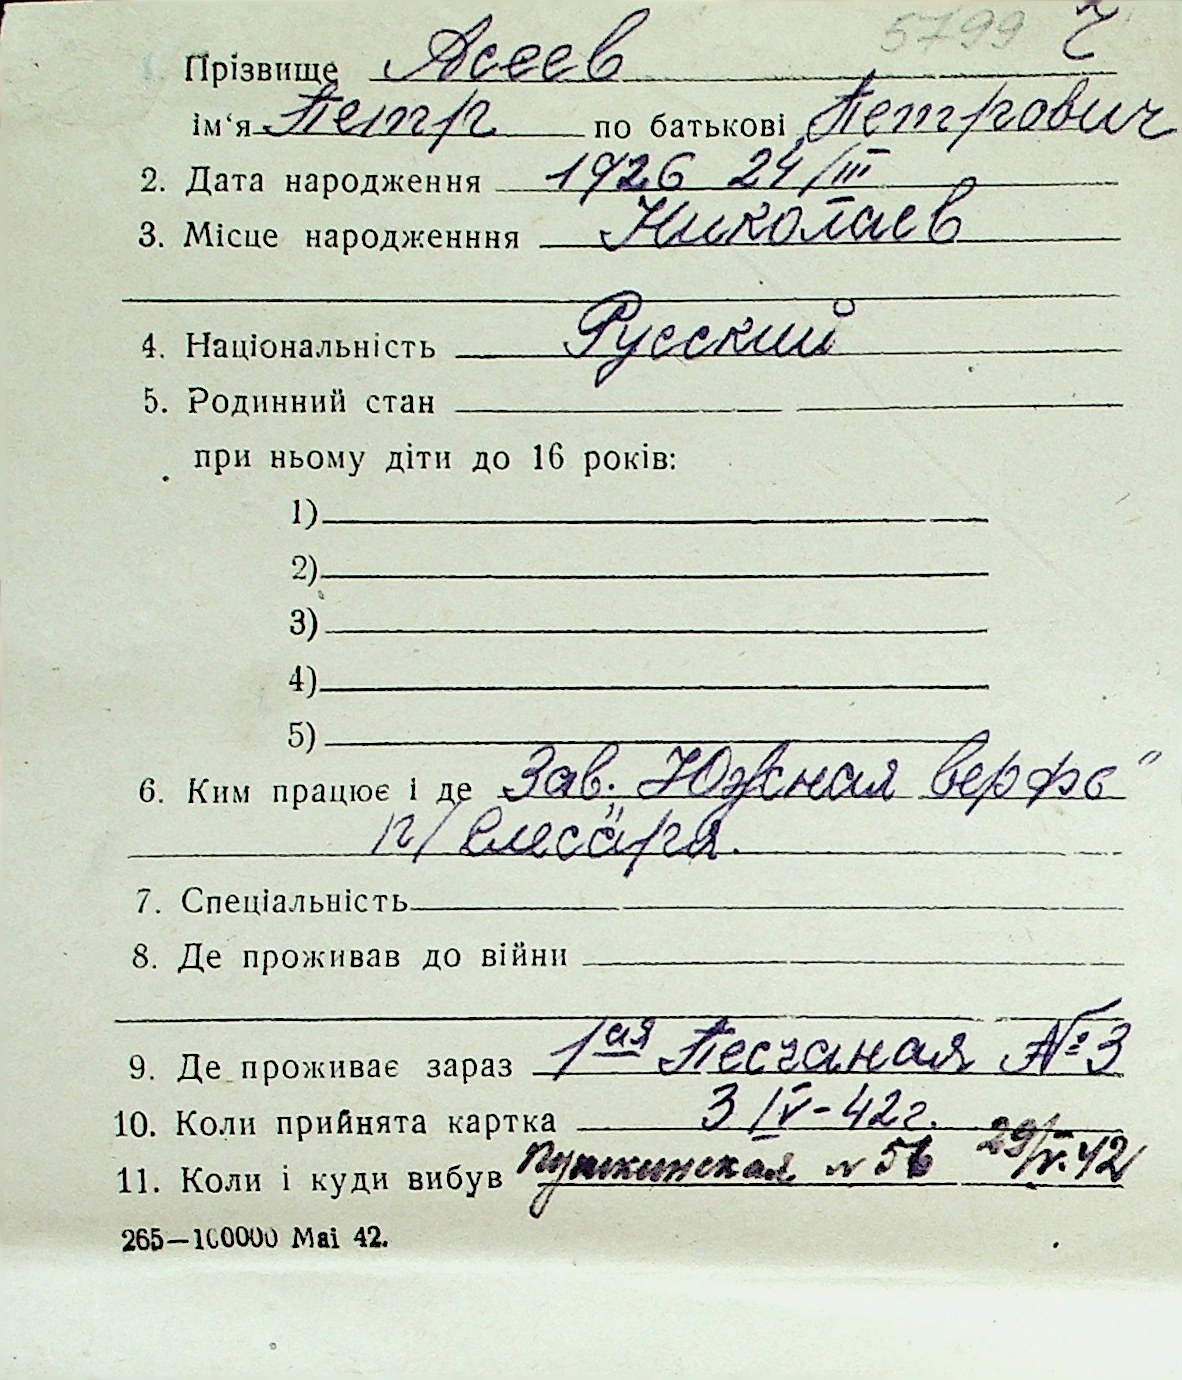 5799 Ч
Прізвище Асеев
ім‘я Петр по батькові Петрович
2. Дата народження 1926 24/III
3. Місце народженння Николаев
4. Національність Русский
5. Родинний стан
при ньому діти до 16 років:
1)
2)
3)
4)
5)
6. Ким працює і де Зав. „Южная верфь"
п/слесаря.
7. Спеціальність
8. Де проживав до війни
9. Де проживає зараз 1ая Песчаная № 3
10. Коли прийнята картка 3/IV-42г.
11. Коли і куди вибув Пушкинская № 56 29/V.42
265—100000 Mai 42.